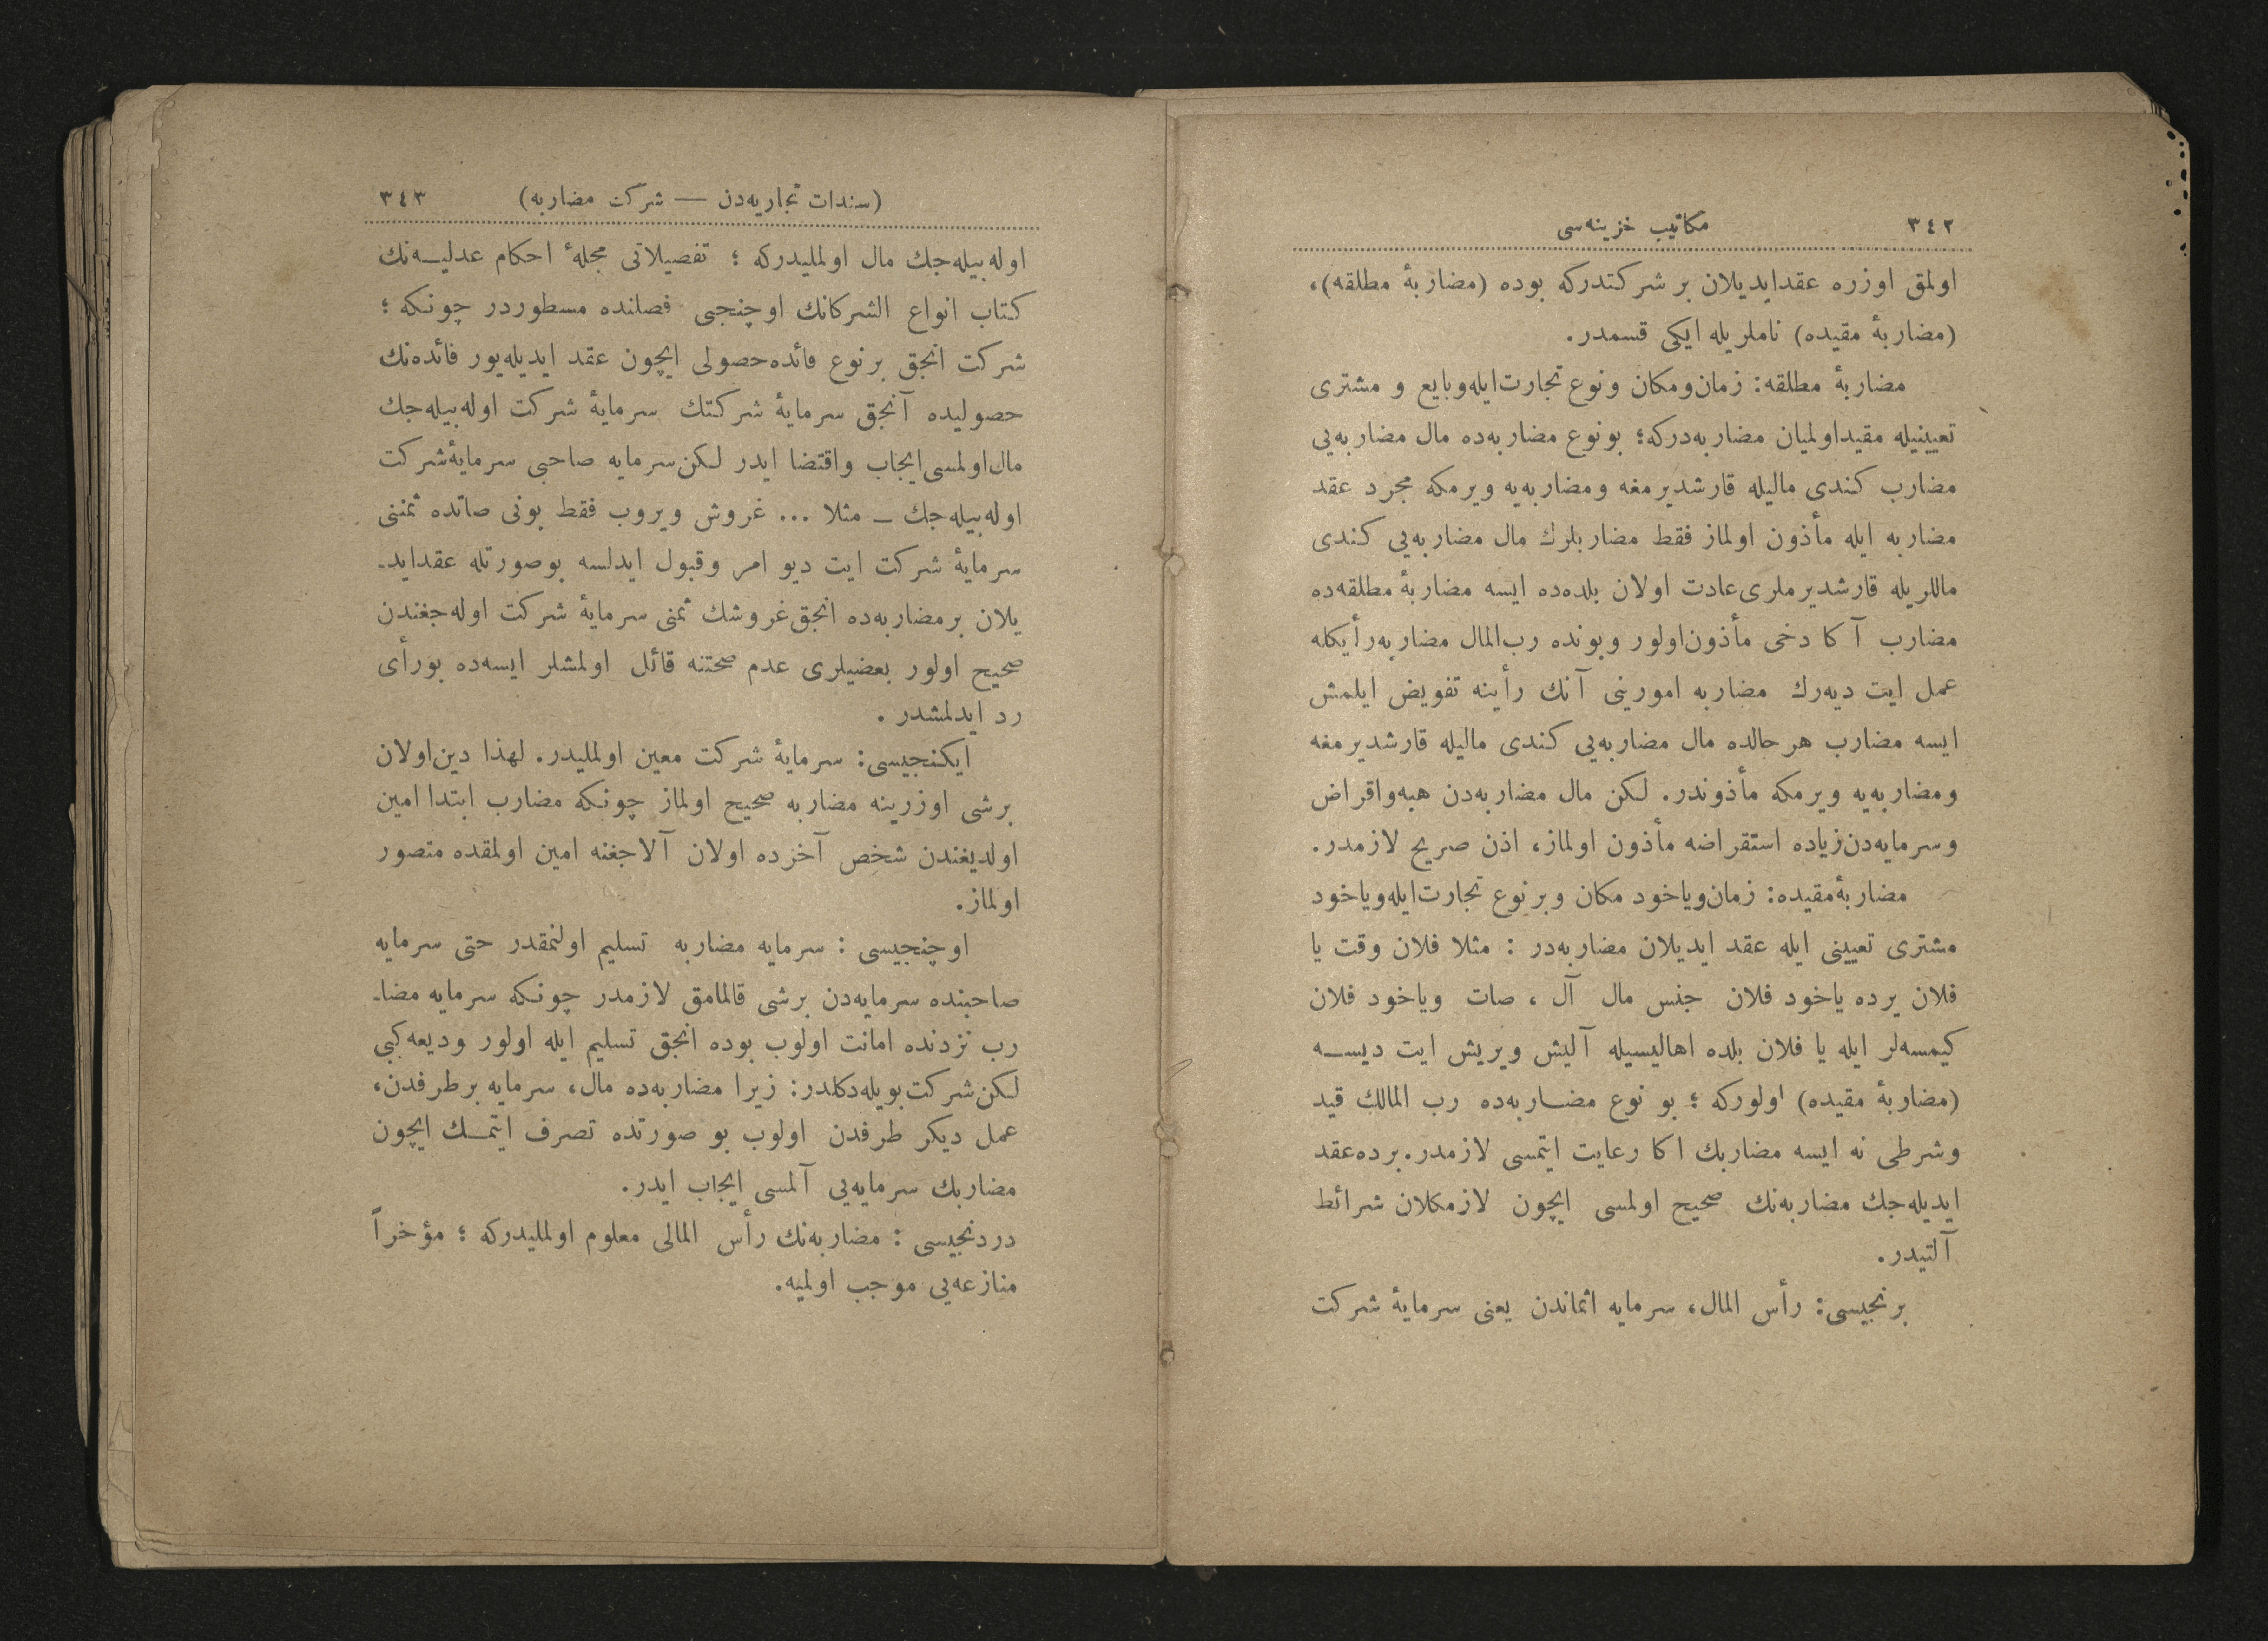 ٣٤٢ مكاتيب خزينه‌سى
اولمق اوزره عقدايديلان بر شركتدركه بوده (مضاربهٔ مطلقه)،
(مضاربهٔ مقيده) ناملريله ايكى قسمدر.
مضاربهٔ مطلقه: زمان‌ومكان ونوع تجارت‌ايله‌وبايع و مشترى
تعيينيله مقيداولميان مضاربه‌دركه؛ بونوع مضاربه‌ده مال مضاربه‌يى
مضارب كندى ماليله قارشديرمغه ومضاربه‌يه ويرمكه مجرد عقد
مضاربه ايله مأذون اولماز فقط مضاربلرك مال مضاربه‌يى كندى
ماللريله قارشديرملرى‌عادت اولان بلده‌ده ايسه مضاربهٔ مطلقه‌ده
مضارب آكا دخى مأذون‌اولور وبونده رب‌المال مضاربه‌رأيكله
عمل ايت ديه‌رك مضاربه امورينى آنك رأينه تفويض ايلمش
ايسه مضارب هر حالده مال مضاربه‌يى كندى ماليله قارشديرمغه
ومضاربه‌يه ويرمكه مأذوندر. لكن مال مضاربه‌دن هبه‌واقراض
وسرمايه‌دن‌زياده استقراضه مأذون اولماز، اذن صريح لازمدر.
مضاربهٔ‌مقيده: زمان‌وياخود مكان وبر نوع تجارت‌ايله‌وياخود
مشترى تعيينى ايله عقد ايديلان مضاربه‌در : مثلا فلان وقت يا
فلان يرده ياخود فلان جنس مال آل ، صات وياخود فلان
كيمسه‌لر ايله يا فلان بلده اهاليسيله آليش ويريش ايت ديســه
(مضاربهٔ مقيده) اولوركه ؛ بو نوع مضــاربه‌ده رب المالك قيد
وشرطى نه ايسه مضاربك اكا رعايت ايتمسى لازمدر.برده‌عقد
ايديله‌جك مضاربه‌نك صحيح اولمسى ايچون لازمكلان شرائط
آلتيدر.
برنجيسى: رأس المال، سرمايه اثماندن يعنى سرمايهٔ شركت
(سندات تجاريه‌دن — شركت مضاربه) ٣٤٣
اوله‌بيله‌جك مال اولمليدركه ؛ تفصيلاتى مجلهٔ احكام عدليــه‌نك
كتاب انواع الشركاتك اوچنجى فصلنده مسطوردر چونكه ؛
شركت انجق برنوع فائده‌حصولى ايچون عقد ايديله‌يور فائده‌نك
حصوليده آنجق سرمايهٔ شركتك سرمايهٔ شركت اوله‌بيله‌جك
مال‌اولمسى‌ايجاب واقتضا ايدر لكن‌سرمايه صاحبى سرمايهٔ‌شركت
اوله‌بيله‌جك ـ مثلا ... غروش ويروب فقط بونى صاتده ثمننى
سرمايهٔ شركت ايت ديو امر وقبول ايدلسه بوصورتله عقدايد-
يلان برمضاربه‌ده انجق‌غروشك ثمنى سرمايهٔ شركت اوله‌جغندن
صحيح اولور بعضيلرى عدم صحتنه قائل اولمشلر ايسه‌ده بورأى
رد ايدلمشدر .
ايكنجيسى: سرمايهٔ شركت معين اولمليدر. لهذا دين‌اولان
برشى اوزرينه مضاربه صحيح اولماز چونكه مضارب ابتدا امين
اولديغندن شخص آخرده اولان آلاجغنه امين اولمقده متصور
اولماز.
اوچنجيسى : سرمايه مضاربه تسليم اولنمقدر حتى سرمايه
صاحبنده سرمايه‌دن برشى قالمامق لازمدر چونكه سرمايه مضا-
رب نزدنده امانت اولوب بوده انجق تسليم ايله اولور وديعه‌كبى
لكن‌شركت‌بويله‌دكلدر: زيرا مضاربه‌ده مال، سرمايه برطرفدن،
عمل ديكر طرفدن اولوب بو صورتده تصرف ايتمــك ايچون
مضاربك سرمايه‌يى آلمسى ايجاب ايدر.
دردنجيسى : مضاربه‌نك رأس المالى معلوم اولمليدركه ؛ مؤخراً
منازعه‌يى موجب اولميه.